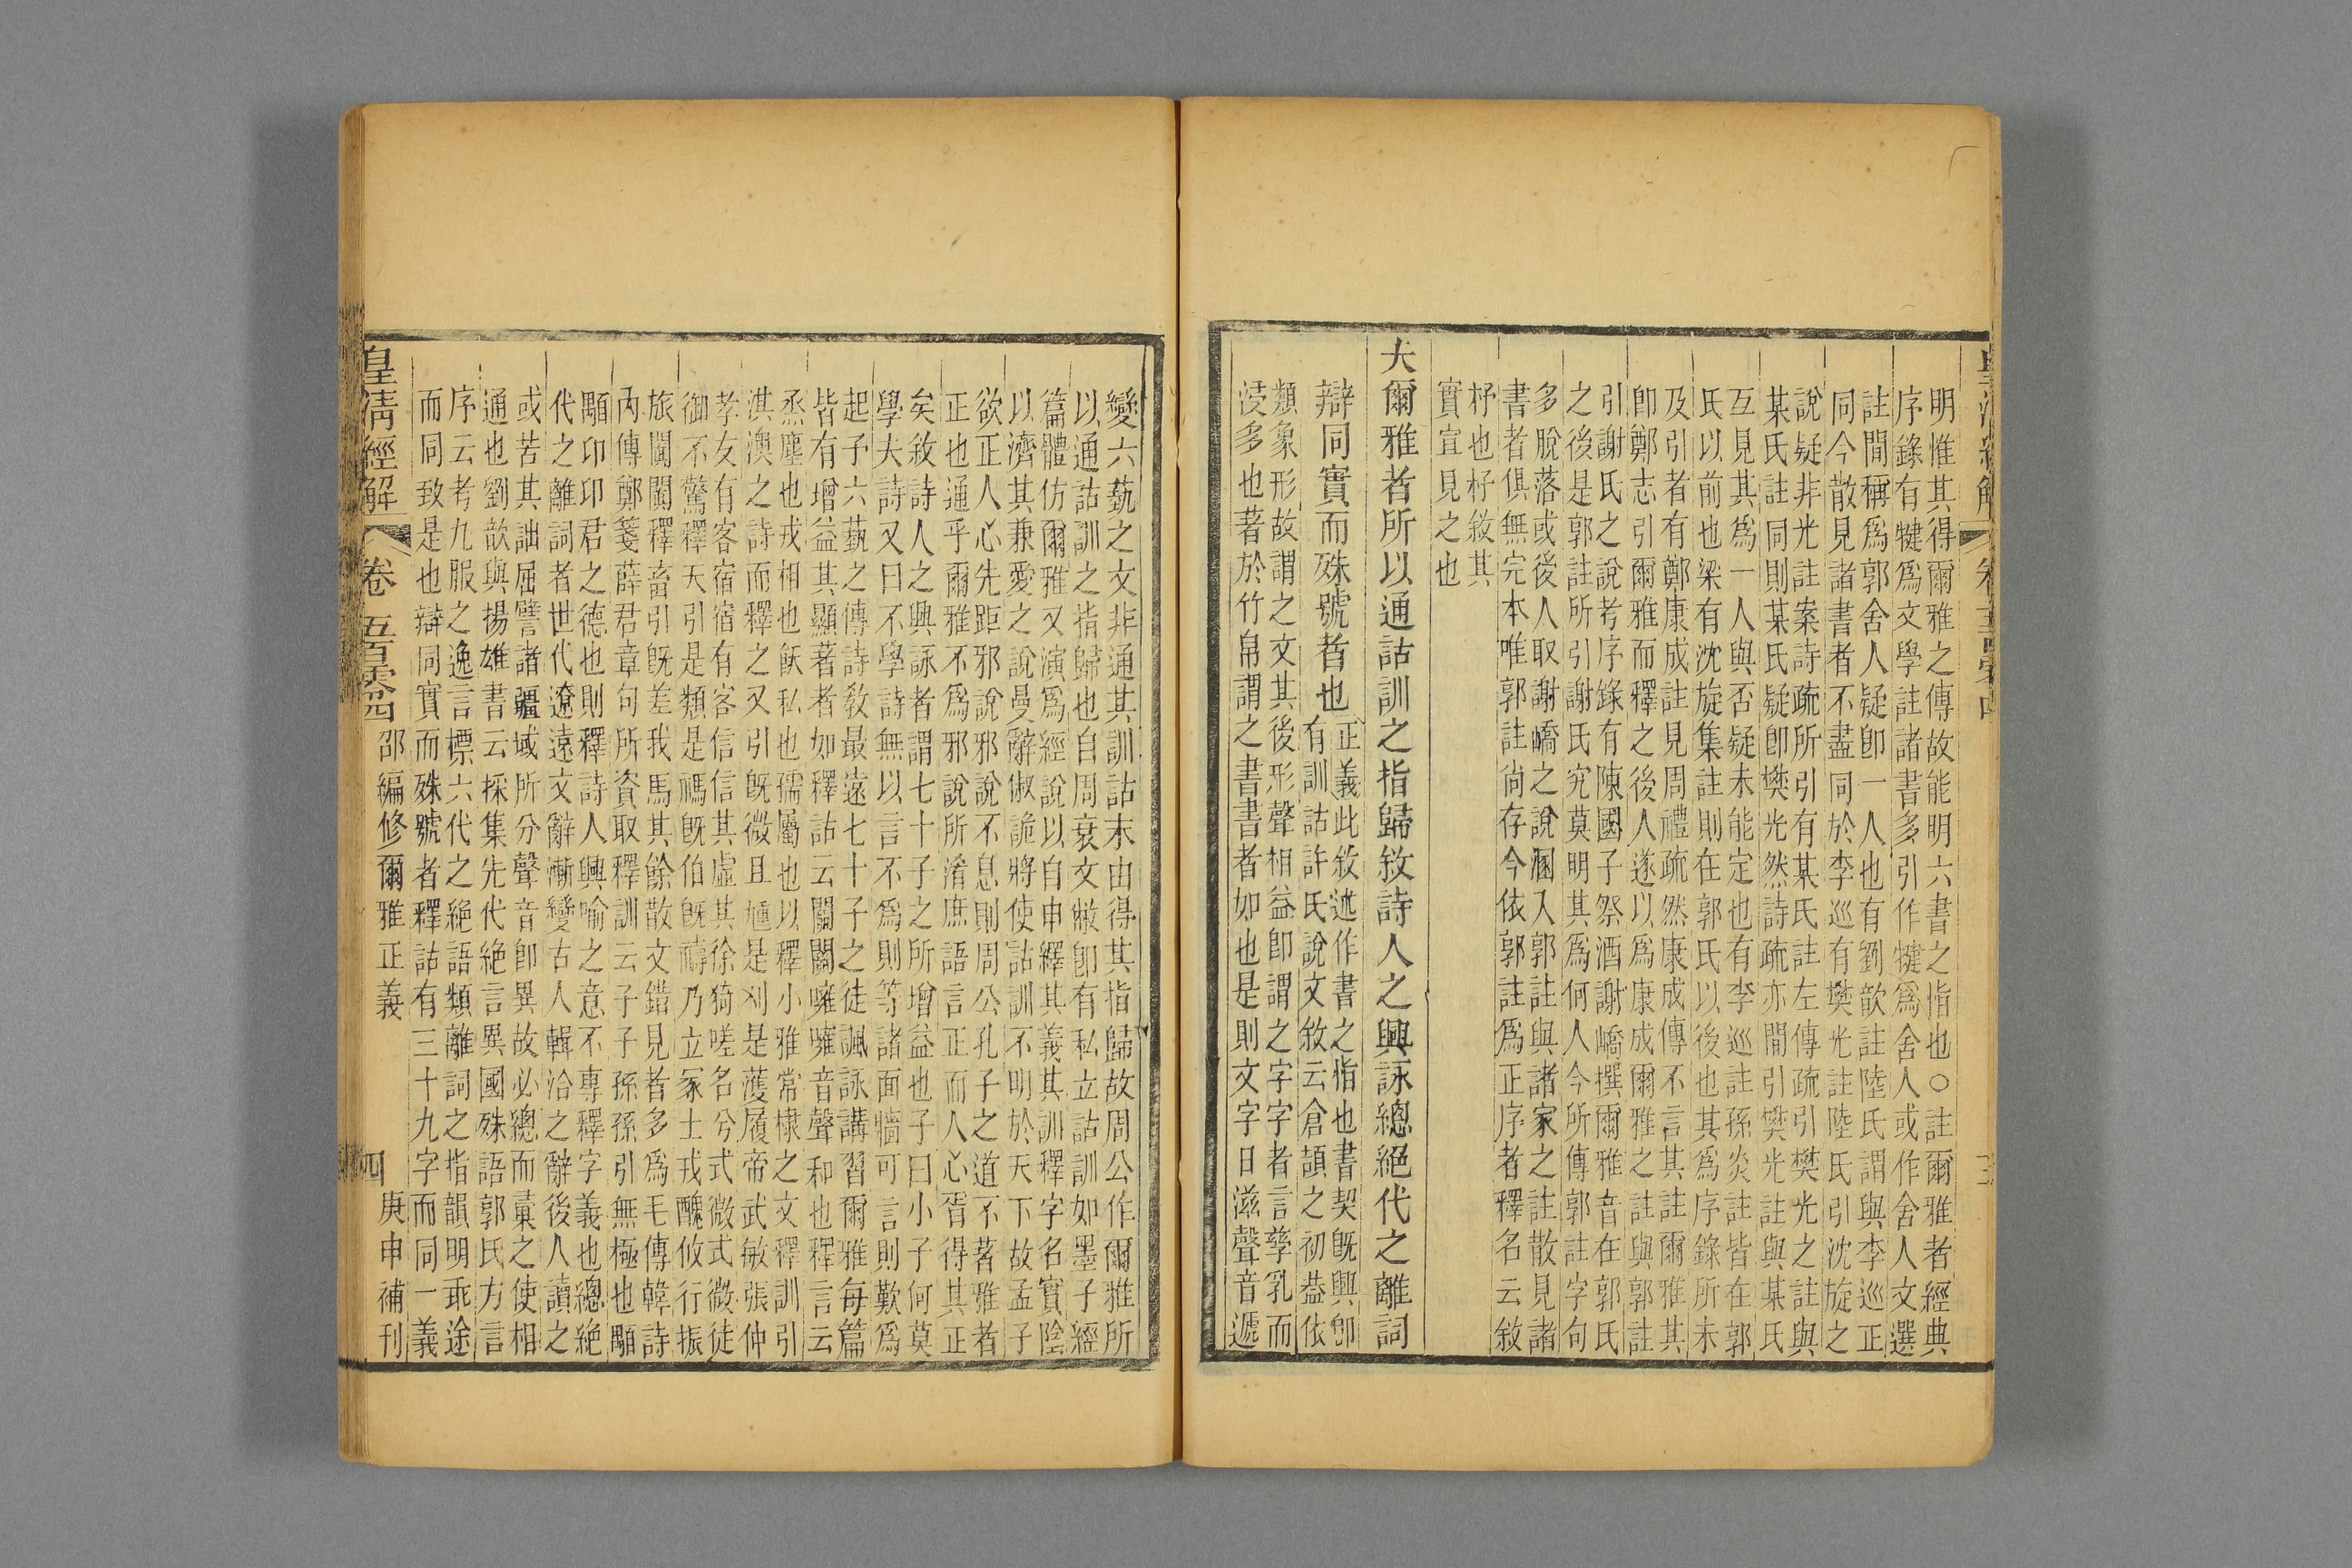 明惟其得爾雅之傳故能明六書之指也○註爾雅者經典
序錄有犍爲文學註諸書多引作犍爲舍人或作舍人文選
註間稱爲郭舍人疑卽一人也有劉歆註陸氏謂與李巡正
同今散見諸書者不盡同於李巡有樊光註陸氏引沈旋之
說疑非光註案詩疏所引有某氏註左傳疏引樊光之註與
某氏註同則某氏疑卽樊光然詩疏亦間引樊光註與某氏
互見其爲一人與否疑未能定也有李巡註孫炎註皆在郭
氏以前也梁有沈旋集註則在郭氏以後也其爲序錄所未
及引者有鄭康成註見周禮疏然康成傳不言其註爾雅其
卽鄭志引爾雅而釋之後人遂以爲康成爾雅之註與郭註
引謝氏之說考序錄有陳國子祭酒謝嶠撰爾雅音在郭氏
之後是郭註所引謝氏究莫明其爲何人今所傳郭註字句
多脫落或後人取謝嶠之說溷入郭註與諸家之註散見諸
書者俱無完本唯郭註尚存今依郭註爲正序者釋名云敘
杼也杼敘其
實宜見之也
夫爾雅者所以通詁訓之指歸敘詩人之興詠總絕代之離詞
辯同實而殊號者也
正義此敘述作書之指也書契旣興卽
有訓詁許氏說文敘云倉頡之初葢依
類象形故謂之文其後形聲相益卽謂之字字者言孳乳而
浸多也著於竹帛謂之書書者如也是則文字日滋聲音遞
變六藝之文非通其訓詁末由得其指歸故周公作爾雅所
以通詁訓之指歸也自周衰文敝卽有私立詁訓如墨子經
篇體仿爾雅又演爲經說以自申繹其義其訓釋字名實陰
以濟其兼愛之說曼辭俶詭將使詁訓不明於天下故孟子
欲正人心先距邪說邪說不息則周公孔子之道不著雅者
正也通乎爾雅不爲邪說所淆庶語言正而人心胥得其正
矣敘詩人之興詠者謂七十子之所增益也子曰小子何莫
學夫詩又曰不學詩無以言不爲則等諸面牆可言則歎爲
起予六藝之傳詩敎最遠七十子之徒諷詠講習爾雅每篇
皆有增益其顯著者如釋詁云關關噰噰音聲和也釋言云
烝塵也戎相也飫私也孺屬也以釋小雅常棣之文釋訓引
淇澳之詩而釋之又引旣微且尰是刈是濩履帝武敏張仲
孝友有客宿宿有客信信其虛其徐猗嗟名兮式微式微徒
御不驚釋天引是類是禡旣伯旣禱乃立冢土戎醜攸行振
旅闐闐釋畜引旣差我馬其餘散文錯見者多爲毛傳韓詩
內傳鄭箋薛君章句所資取釋訓云子子孫孫引無極也顒
顒卬卬君之德也則釋詩人興喻之意不專釋字義也總絕
代之離詞者世代遼遠文辭漸變古人輯洽之辭後人讀之
或苦其詘屈譬諸疆域所分聲音卽異故必總而彙之使相
通也劉歆與揚雄書云採集先代絕言異國殊語郭氏方言
序云考九服之逸言標六代之絕語類離詞之指韻明乖途
而同致是也辯同實而殊號者釋詁有三十九字而同一義
皇淸經解 卷五百零四 邵編修爾雅正義 四 庚申補刊